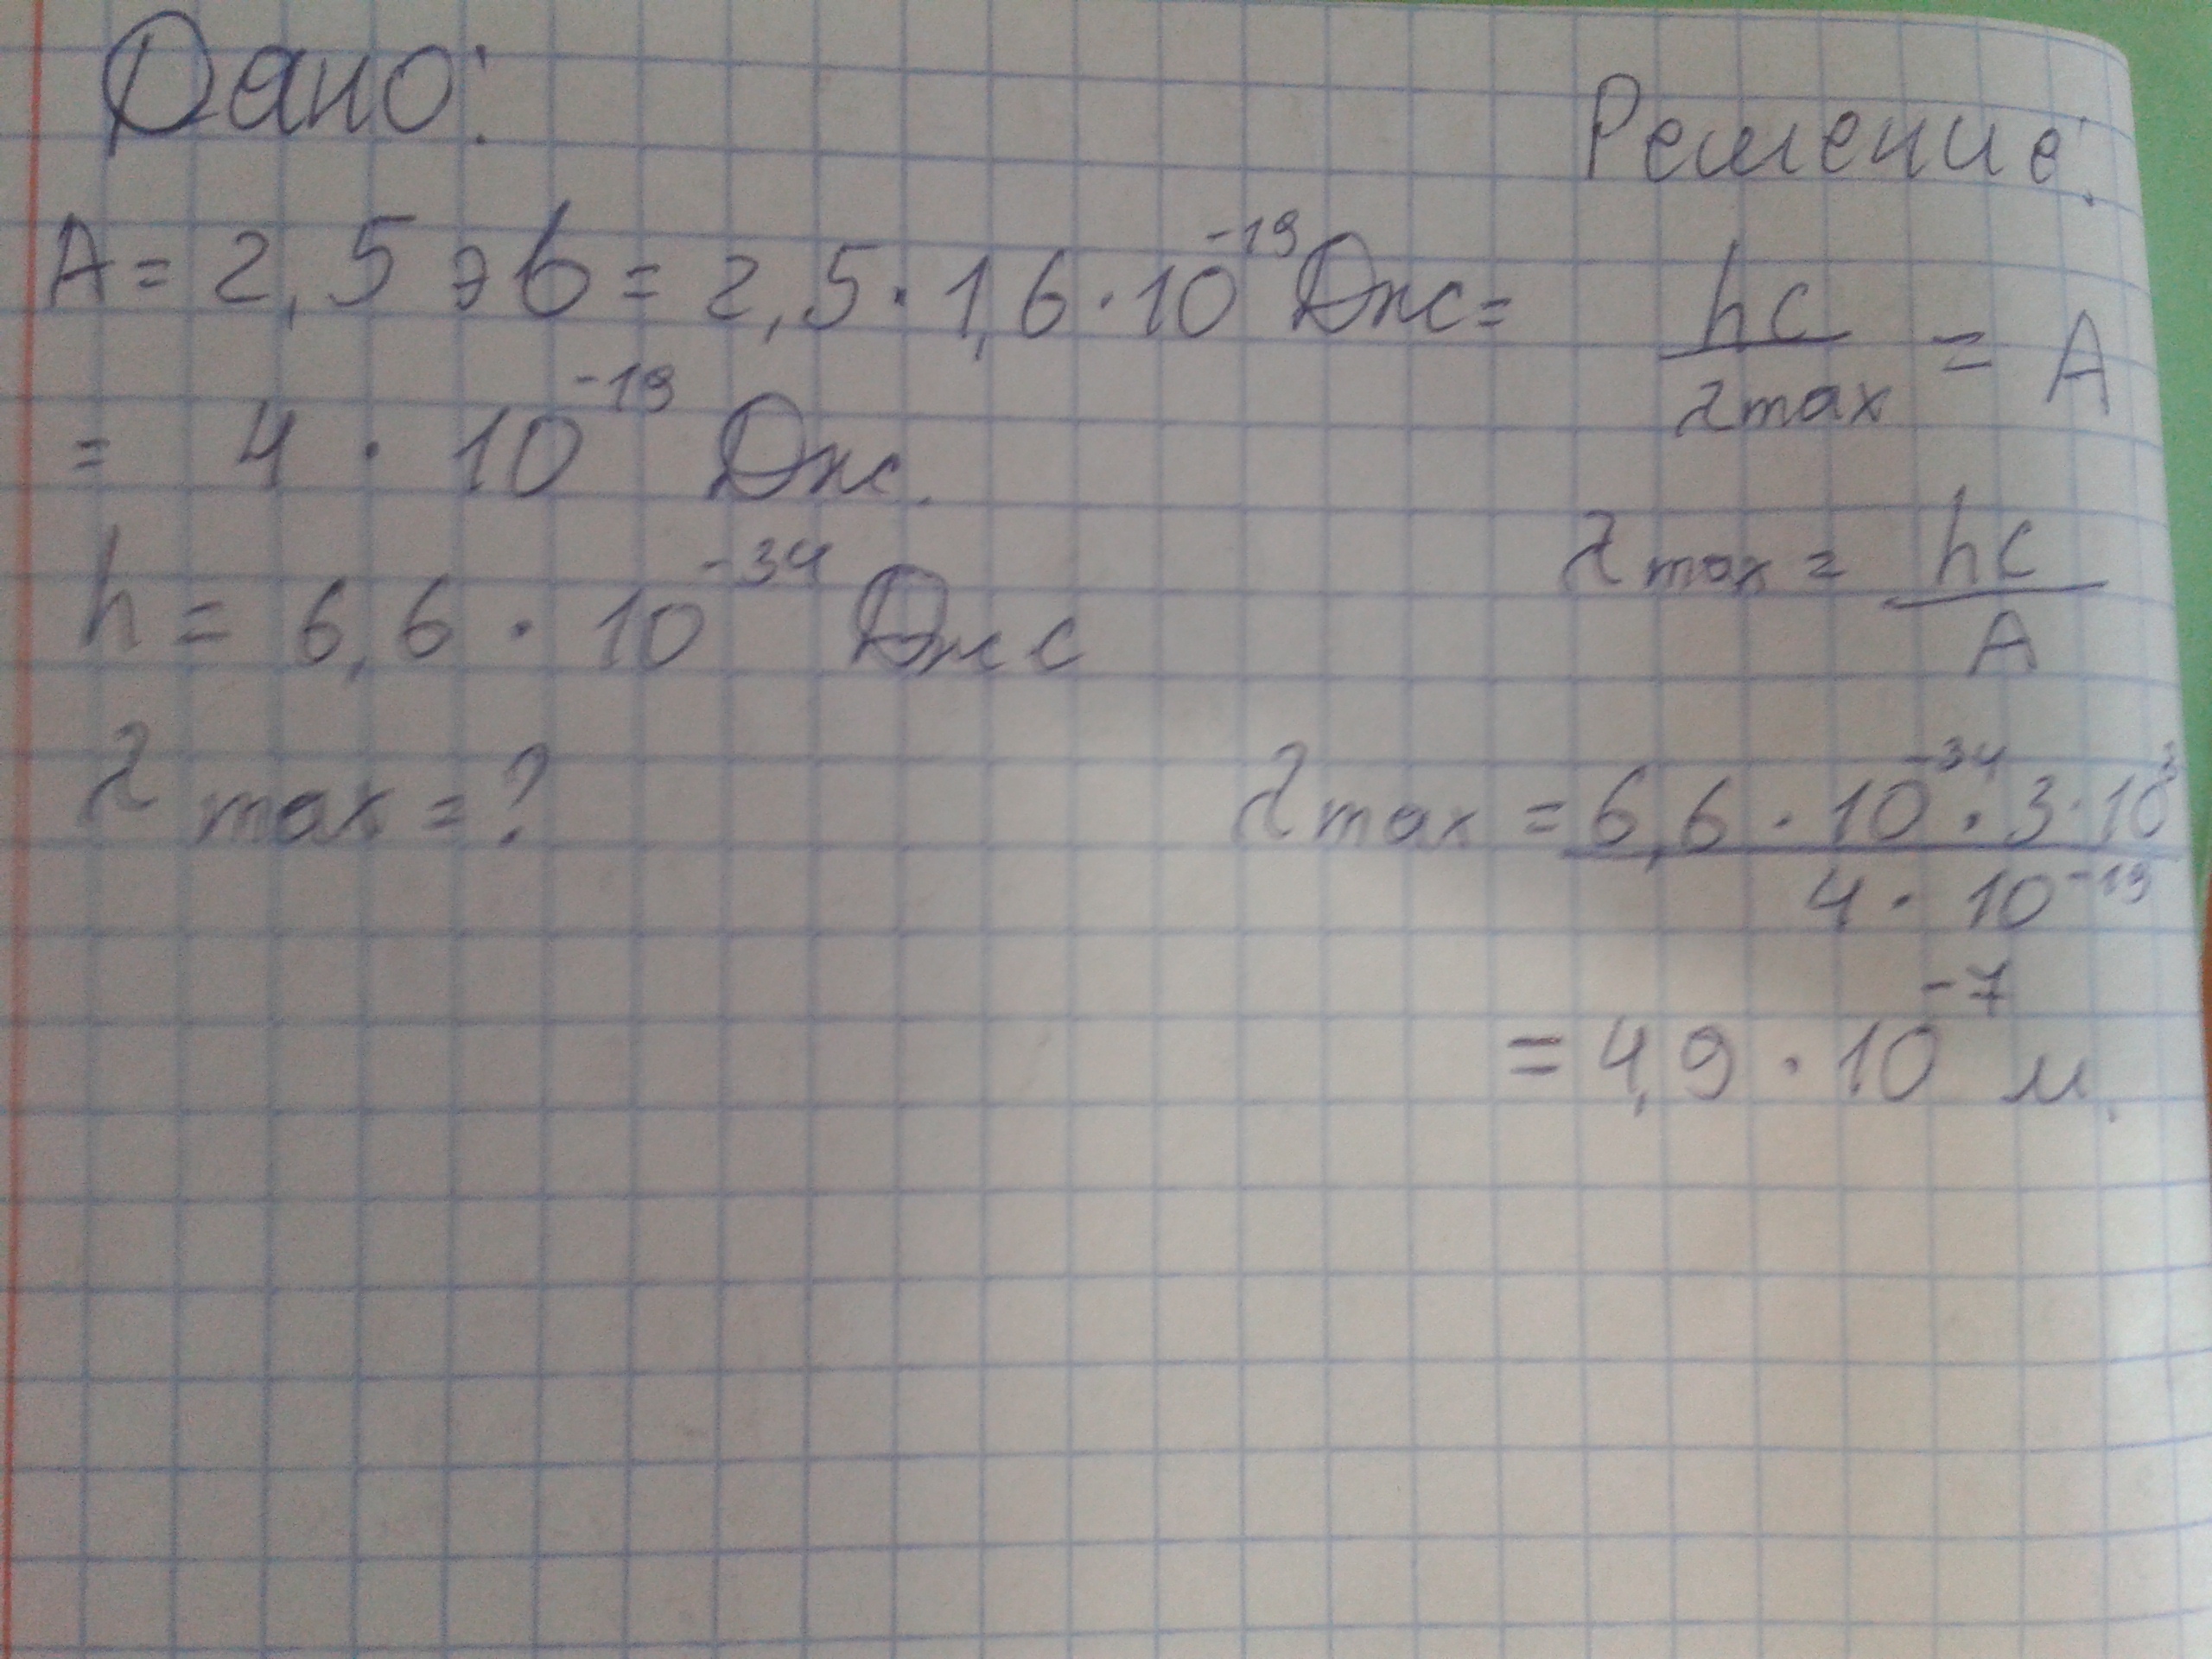 Дано:
A = 2,5 эв = 2,5 · 1,6 · 10^-19 Дж =
= 4 · 10^-19 Дж.
h = 6,6 · 10^-34 Дж с
λ max = ?
Решение:
hc / λ max = A
λ max = hc / A
λ max = 6,6 · 10^-34 · 3 · 10^3 / 4 · 10^-19
= 4,9 · 10^-7 м.